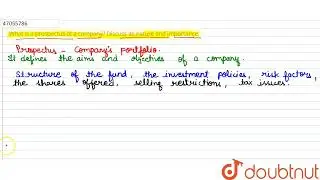 47055786
What is a prospectus of a company? Discuss its nature and importance.
Prospectus - Company's portfolio.
It defines the aims and objectives of a company.
Structure of the fund, the investment policies, risk factors,
the shares offered, selling restrictions, tax issues.
doubtnut